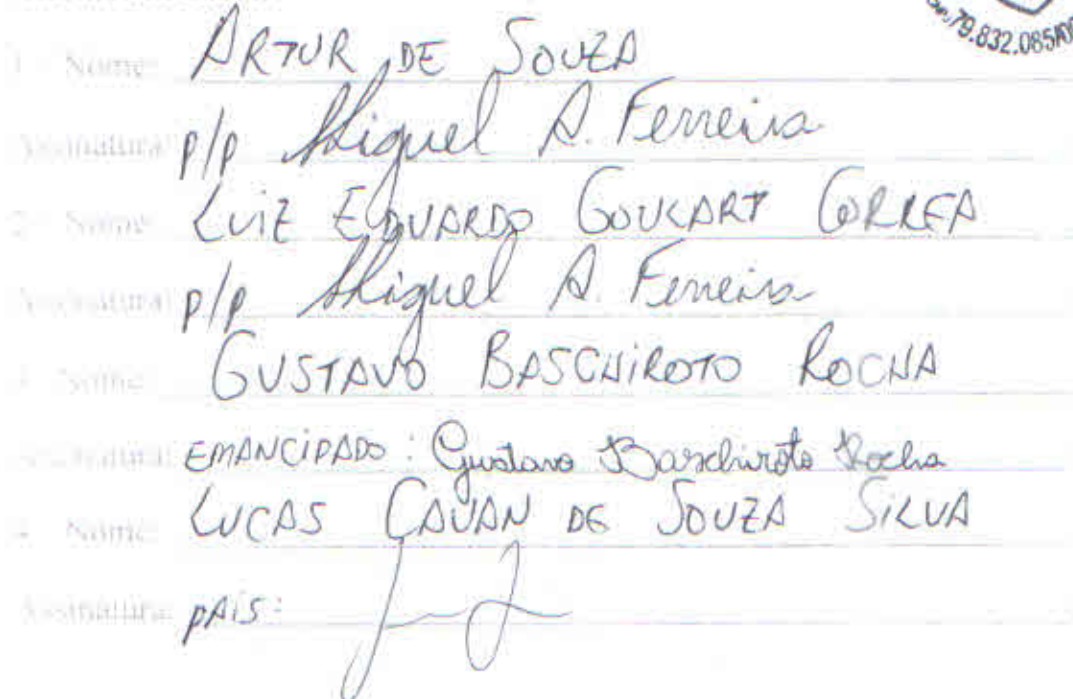 79.832.085/00
1 - Nome: ARTUR DE SOUZA
Assinatura: p/p Miguel A. Ferreira
2 - Nome: LUIZ EDUARDO GOULART CORREA
Assinatura: p/p Miguel A. Ferreira
3 - Nome: GUSTAVO BASCHIROTO ROCHA
Assinatura: EMANCIPADO: Gustavo Baschiroto Rocha
4 - Nome: LUCAS CAUAN DE SOUZA SILVA
Assinatura: PAIS: